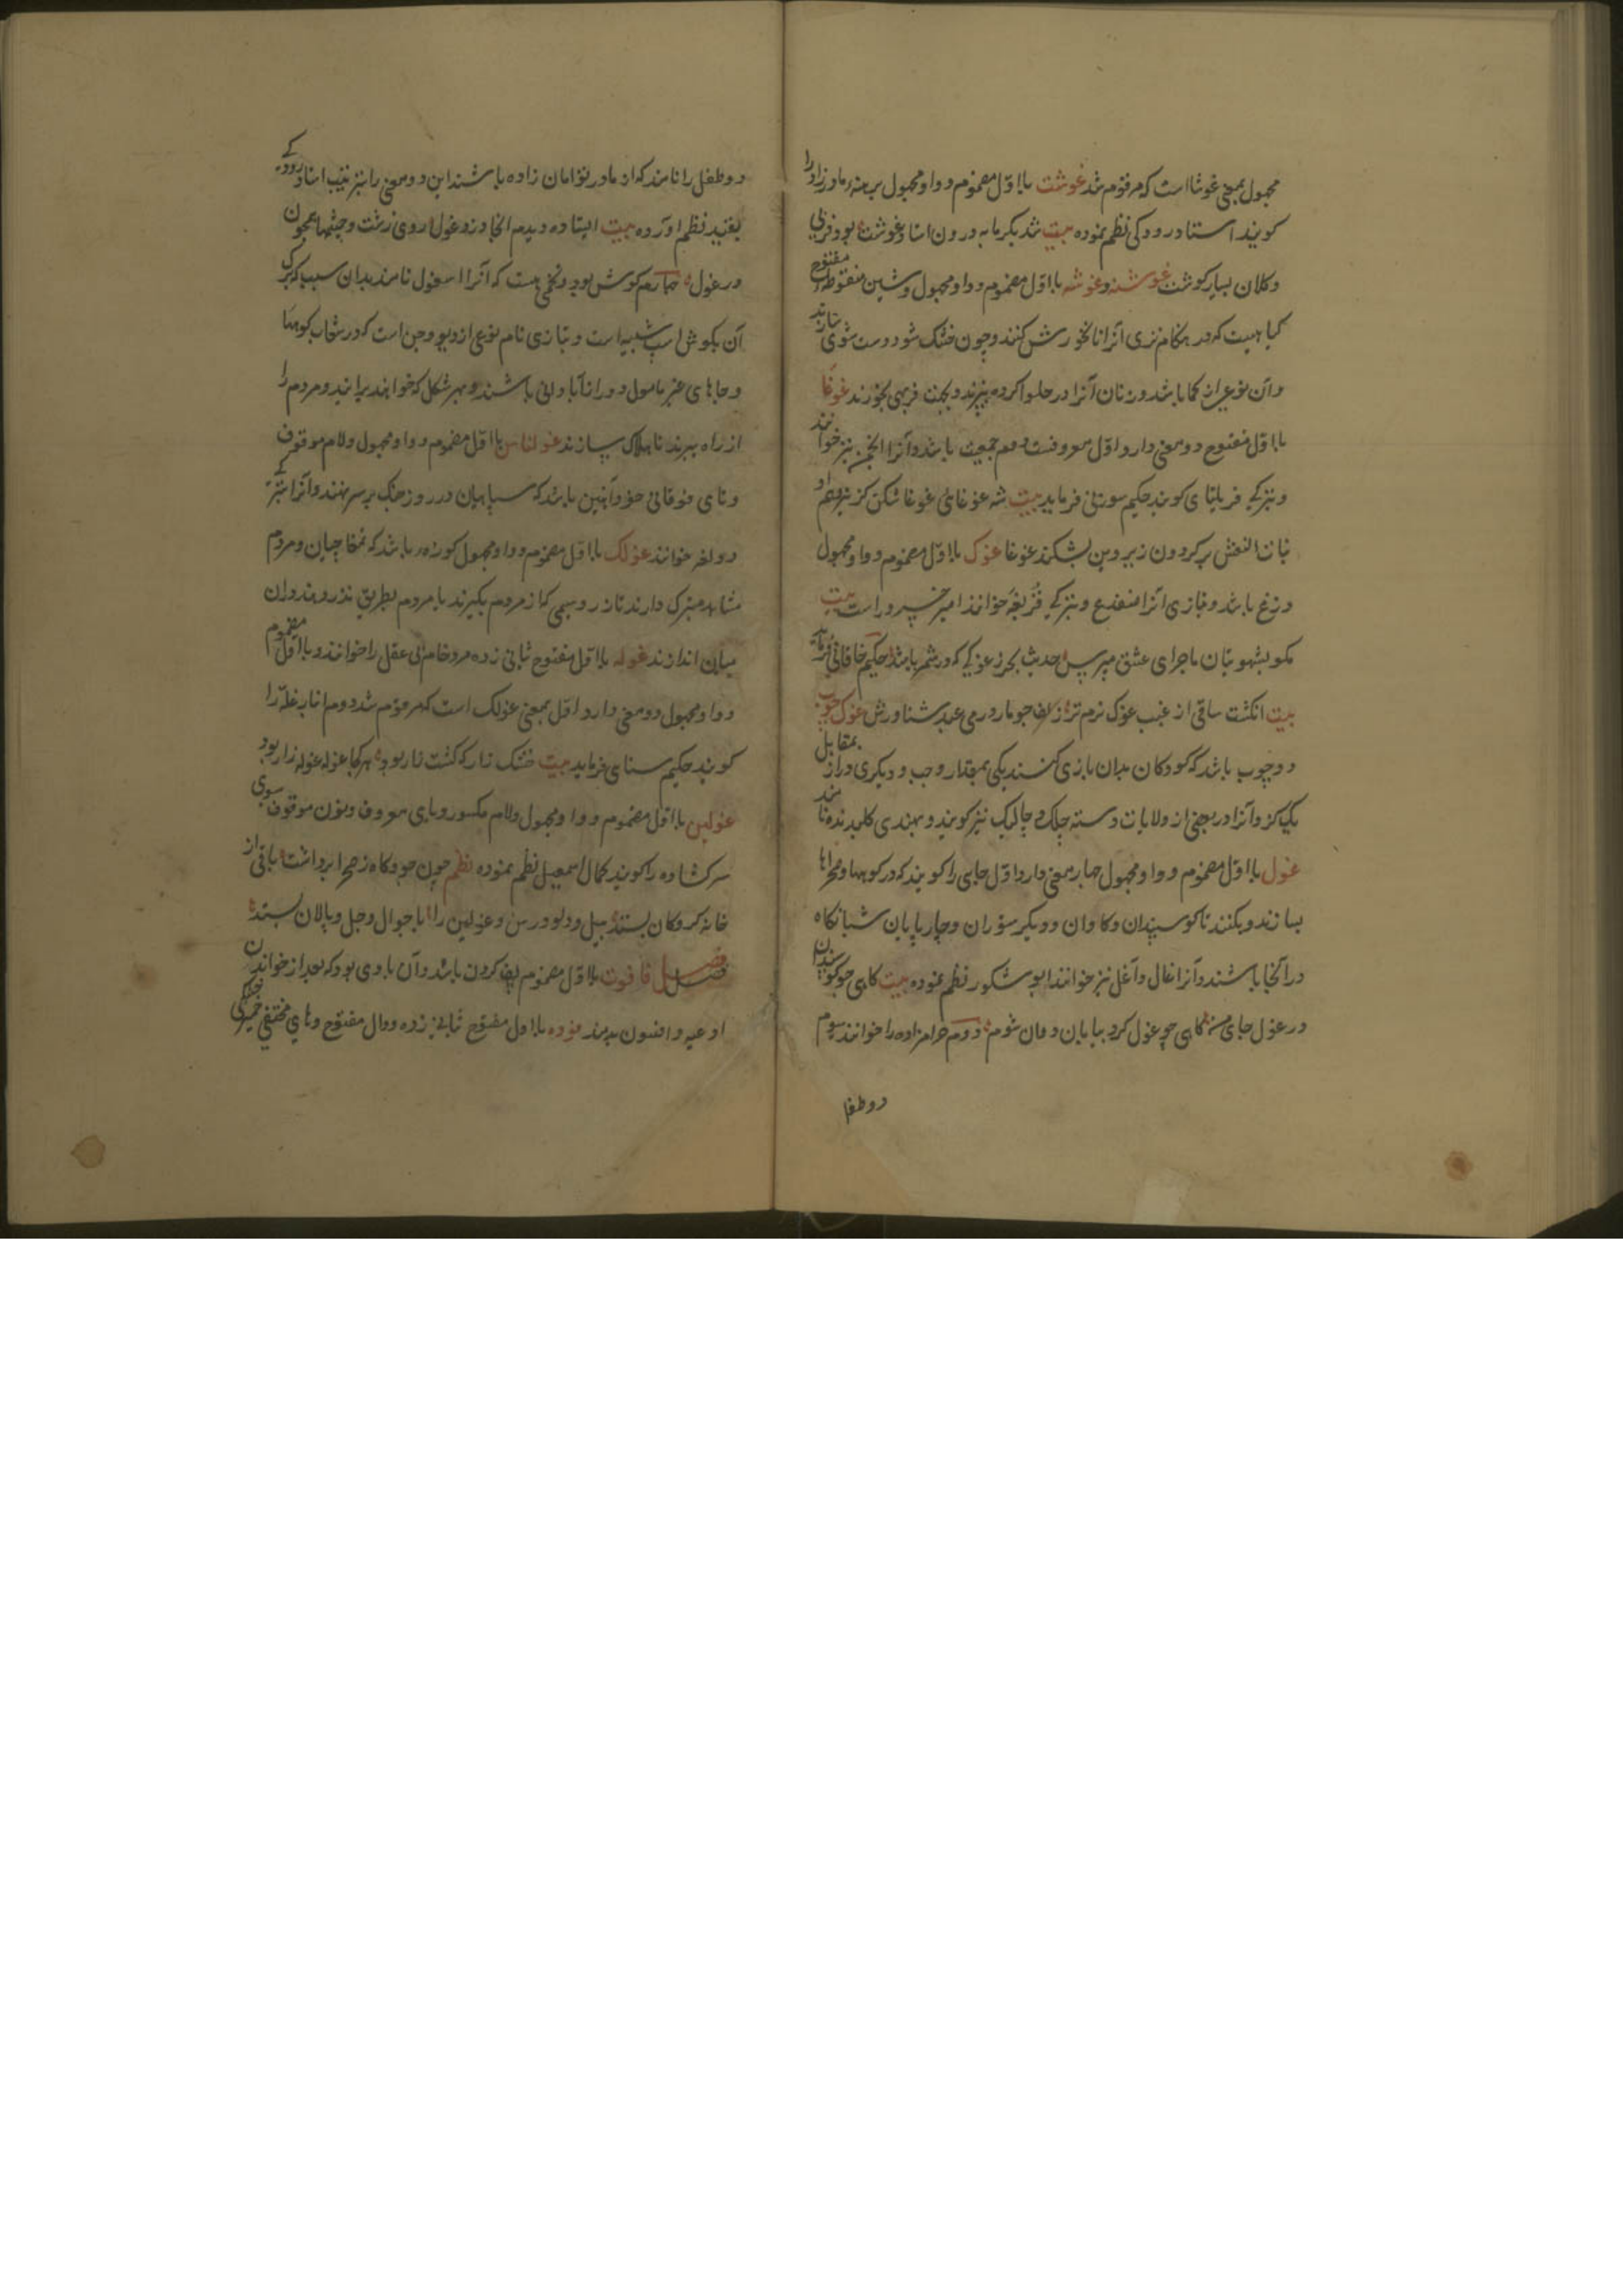 مجهول بمعنی غوشا است که مرقوم شد غوشت بااول مضموم و واو مجهول برهنه مادرزاد را
کویند استاد رودکی نظم نموده بیت شد بکرمابه درون استاد غوشت بود فربی
وکلان بسیار کوشت غوشنه وغوشه بااول مضموم و واو مجهول وشین منقوطه مفتوح
کیاهیست که در هنکام تری آنرا نانخورش کنند وچون خشک شود دست شوی سازند
وآن نوعی از کما باشد وزنان آنرا در حلوا کرده بپزند وبجهت فربهی بخورند غوغا
بااول مفتوح دو معنی دارد اول معروفست دوم جمعیت باشد وآنرا انجمن نیز خوانند
حکیم سوزنی فرماید بیت شه غوغای غوغا شکن کز
بنات النعش بر کردون زپروین بشکند غوغا غوک بااول مضموم و واو مجهول
وزغ باشد وبتازی آنرا ضفدع خوانند امیر خسرو راست بیت
مکو بشهوتیان ماجرای عشق مپرس حدیث بحر ز غوکی که در شمر باشد حکیم خاقانی فرماید
بیت انکشت ساقی از غبب غوک نرم تر زلف جو مار در می عید شناورش غوک چوب
دو چوب باشد که کودکان بدان بازی کنند یکی بمقدار وجب و دیکری دراز بمقابل
یک کز وآنرا در بعضی از ولایات دسته چلک وچالیک نیز کویند وبهندی کلیدنده نامند
غول بااول مضموم و واو مجهول چهار معنی دارد اول جایی را کویند که در کوهها وصحراها
بسازند وبکنند تا کوسپندان وکاوان ودیکر ستوران وچارپایان شبانکاه
در آنجا باشند وآنرا اغال وآغل نیز خوانند ابو شکور نظم نموده بیت کاهی چو کوسپندان
در غول جای من کاهی چو غول کرد بیابان دوان شوم دوم حرامزاده را خوانند سوم
دو طفل
دو طفل را نامند که از مادر توامان زاده باشند این دو معنی را بترتیب استاد رودکی
بقید نظم اورده بیت ایستاده دیدم انجا دزد وغول روی زشت وچشمها همچون
دو غول چهارم کوش بود وتخمی هست که آنرا اسغول نامند بدان سبب که برک
آن بکوش اسب شبیه است وبتازی نام نوعی از دیو وجن است که در شعاب کوهها
وجاهای غیر مامول ودور از آبادانی باشند وبهر شکل که خواهند برایند ومردم را
از راه ببرند تا هلاک سازند غولتاس بااول مضموم و واو مجهول ولام موقوف
وتای فوقانی خود آهنین باشد که سپاهیان در روز جنک بر سر نهند وآنرا بترکی
دولغه خوانند غولک بااول مضموم و واو مجهول کوزه باشد که تمغاچیان ومردم
مشاهد متبرک دارند تا زر وسیمی که از مردم بکیرند یا مردم بطریق نذر دهند در ان
میان اندازند غوله بااول مفتوح ثانی زده مرد خام بی عقل را خوانند وبااول مضموم
و واو مجهول دو معنی دارد اول بمعنی غولک است که مرقوم شد دوم انبار غله را
کویند حکیم سنای فرماید بیت خشک زار که کشت زار بود هر کجا غوله غوله زار بود
غولین بااول مضموم و واو مجهول ولام مکسور ویای معروف ونون موقوف سبوی
سر کشاده را کویند کمال اسمعیل نظم نموده نظم چون جو وکاه ز صحرا برداشت باقی از
خانه کروکان بستد بیل ودلو ورسن وغولین را با جوال وجل وپالان بستد
فصل فا فوت بااول مضموم پف کردن باشد وآن بادی بود که بعد از خواندن
ادعیه وافسون بدمند فوده بااول مفتوح ثانی زده ودال مفتوح وهای مختفی خمیر